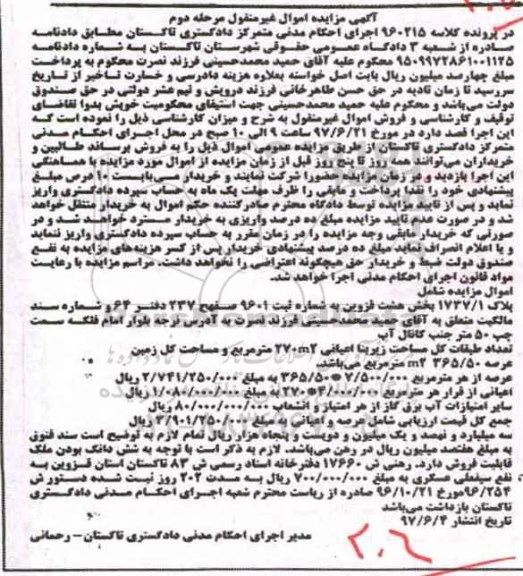 آگهی مزایده اموال غیرمنقول مرحله دوم
در پرونده کلاسه ۹۶۰۲۱۵ اجرای احکام مدنی متمرکز دادگستری تاکستان مطابق دادنامه
صادره از شعبه ۳ دادگاه عمومی حقوقی شهرستان تاکستان به شماره دادنامه
۹۵۰۹۹۷۲۸۶۱۰۰۱۱۲۵ محکوم علیه آقای حمید محمدحسینی فرزند نصرت محکوم به پرداخت
مبلغ چهارصد میلیون ریال بابت اصل خواسته بعلاوه هزینه دادرسی و خسارت تاخیر از تاریخ
سررسید تا زمان تادیه در حق حسن طاهرخانی فرزند درویش و نیم عشر دولتی در حق صندوق
دولت می‌باشد و محکوم علیه حمید محمدحسینی جهت استیفای محکومیت خویش بدوا تقاضای
توقیف و کارشناسی و فروش اموال غیرمنقول به شرح و میزان کارشناسی ذیل را نموده است که
این اجرا قصد دارد در مورخ ۹۷/۶/۲۱ ساعت ۹ الی ۱۰ صبح در محل اجرای احکام مدنی
متمرکز دادگستری تاکستان از طریق مزایده عمومی اموال ذیل را به فروش برساند طالبین و
خریداران می‌توانند همه روز تا پنج روز قبل از زمان مزایده از اموال مورد مزایده با هماهنگی
این اجرا بازدید و در زمان مزایده حضورا شرکت نمایند و خریدار می‌بایست ۱۰ درصد مبلغ
پیشنهادی خود را نقدا پرداخت و مابقی را ظرف مهلت یک ماه به حساب سپرده دادگستری واریز
نماید و پس از تایید مزایده توسط دادگاه محترم صادرکننده حکم اموال به خریدار منتقل خواهد
شد و در صورت عدم تایید مزایده مبلغ ده درصد واریزی به خریدار مسترد خواهد شد و در
صورتی که خریدار مابقی وجه مزایده را در زمان مقرر به حساب سپرده دادگستری واریز ننماید
و یا اعلام انصراف نماید مبلغ ده درصد پیشنهادی خریدار پس از کسر هزینه‌های مزایده به نفع
صندوق دولت ضبط و خریدار حق هیچگونه اعتراضی را نخواهد داشت. مراسم مزایده با رعایت
مواد قانون اجرای احکام مدنی اجرا خواهد شد.
اموال مزایده شامل:
پلاک ۱۷۳۷/۱ بخش هشت قزوین به شماره ثبت ۹۶۰۱ صفحه ۲۳۷ دفتر ۶۴ و شماره سند
مالکیت متعلق به آقای حمید محمدحسینی فرزند نصرت به آدرس نرجه بلوار امام فلکه سمت
چپ ۵۰ متر جنب کانال آب
تعداد طبقات کل مساحت زیربنا اعیانی ۲۷۰m2 مترمربع و مساحت کل زمین
عرصه ۳۶۵/۵۰ m2 مترمربع می‌باشد.
عرصه از هر مترمربع ۷/۵۰۰/۰۰۰*۳۶۵/۵۰ به مبلغ ۲/۷۴۱/۲۵۰/۰۰۰ ریال
اعیانی از قرار هر مترمربع ۴/۰۰۰/۰۰۰*۲۷۰ به مبلغ ۱/۰۸۰/۰۰۰/۰۰۰ ریال
سایر امتیازات آب برق گاز از هر امتیاز و انشعاب ۸۰/۰۰۰/۰۰۰ ریال
جمع کل قیمت ارزیابی شامل عرصه و اعیانی به مبلغ ۳/۹۰۱/۲۵۰/۰۰۰ ریال
سه میلیارد و نهصد و یک میلیون و دویست و پنجاه هزار ریال تمام لازم به توضیح است سند فوق
به مبلغ هفتصد میلیون ریال در رهن می‌باشد. لازم به ذکر است با توجه به شش دانگ بودن ملک
قابلیت فروش دارد. رهنی ش ۱۷۶۶۰ دفترخانه اسناد رسمی ش ۸۳ تاکستان استان قزوین به
نفع سیفعلی عسگری به مبلغ ۷۰۰/۰۰۰/۰۰۰ ریال به مدت ۲۰۲ روز ثبت شده دستور ش
۹۶/۲۵۴ مورخ ۹۶/۱۰/۲۱ صادره از ریاست محترم شعبه اجرای احکام مدنی دادگستری
تاکستان بازداشت می‌باشد
تاریخ انتشار ۹۷/۶/۴
مدیر اجرای احکام مدنی دادگستری تاکستان - رحمانی
۲۰۶